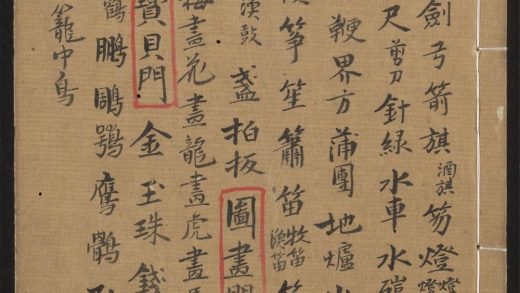 劍弓箭旗酒旗笏燈
尺剪刀針綠水車水磑
鞭界方蒲團地爐
箏笙簫笛牧笛漁笛
漁鼓盞拍板圖畫門
梅畫花畫龍畫虎畫
寶貝門金玉珠錢
鶴鵬鵰鶚鷹鶻
籠中鳥